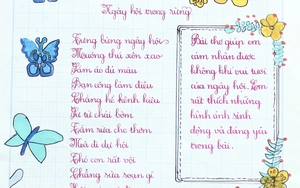 Ngày hội trong rừng
Tưng bừng ngày hội
Muông thú xôn xao
Tắm áo đủ màu
Bạn công làm điệu
Chẳng hề kênh kiệu
Sư tử chải bờm
Tắm rửa cho thơm
Mới đi dự hội
Chó con rất vội
Chẳng sửa soạn gì
Bài thơ giúp em
cảm nhận được
không khí vui tươi
của ngày hội. Em
rất thích những
hình ảnh sinh
động và đáng yêu
trong bài.